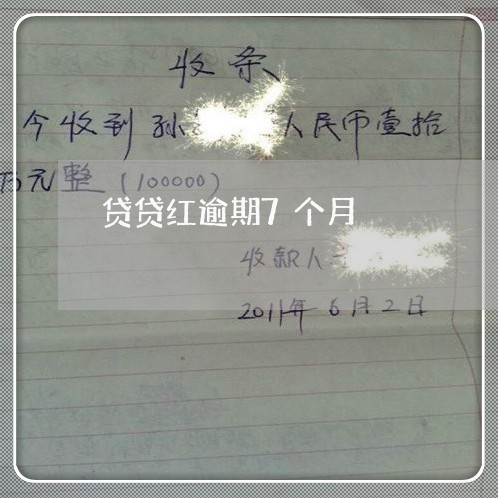 收条
今收到孙 人民币壹拾
万元整(100000)
贷贷红逾期7个月
收款人
2011年6月2日